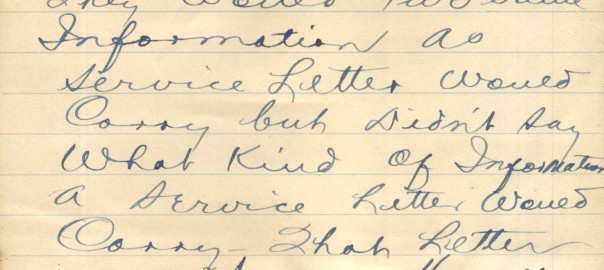 They Would the Same
Information as
Service Letter Would
Carry but Didn't say
What Kind of Information
a Service Letter Would
Carry - That Letter